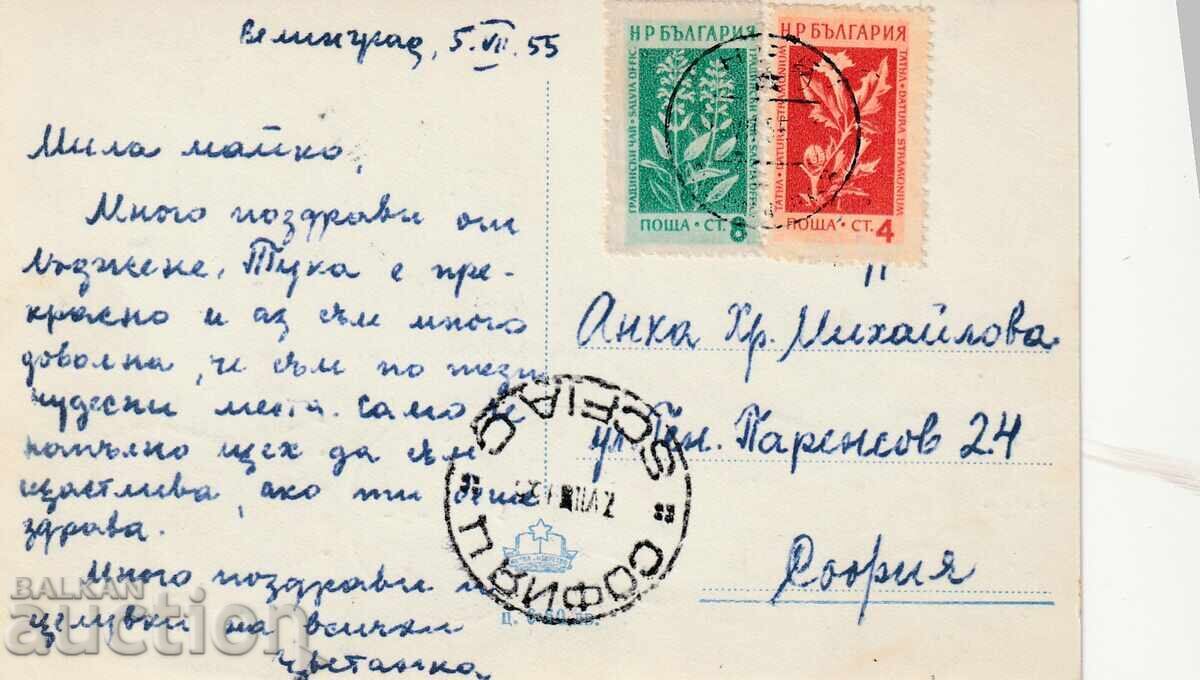 Велинград, 5.VII.55
Мила майко,
Много поздрави от
Лъджене. Тука е пре-
красно и аз съм много
доволна, че съм по тези
чудесни места. Само че
напълно щех да съм
щастлива, ако ти беше
здрава.
Много поздрави и
целувки на всички
Цветанка
Н Р БЪЛГАРИЯ
ГРАДИНСКИ ЧАЙ • SALVIA OFFIC.
ПОЩА • СТ. 8
Н Р БЪЛГАРИЯ
ТАТУЛ • DATURA STRAMONIUM
ПОЩА • СТ. 4
Анка Хр. Михайлова
ул. Ген. Паренсов 24
София
СОФИЯ Ц
SOFIA C
Ц. 0·60 лв.
BALKAN
auction